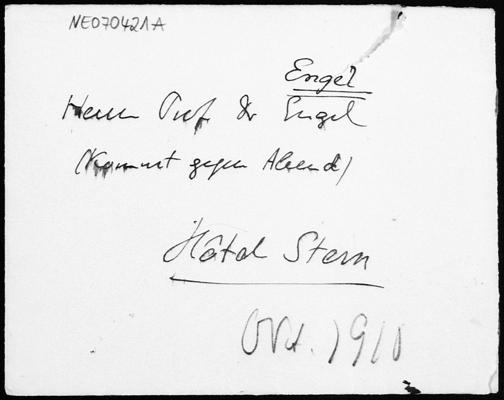 NE070421A
Engel
Herrn Prof Dr Engel
(Kommt gegen Abend)
Hôtel Stern
Okt. 1910